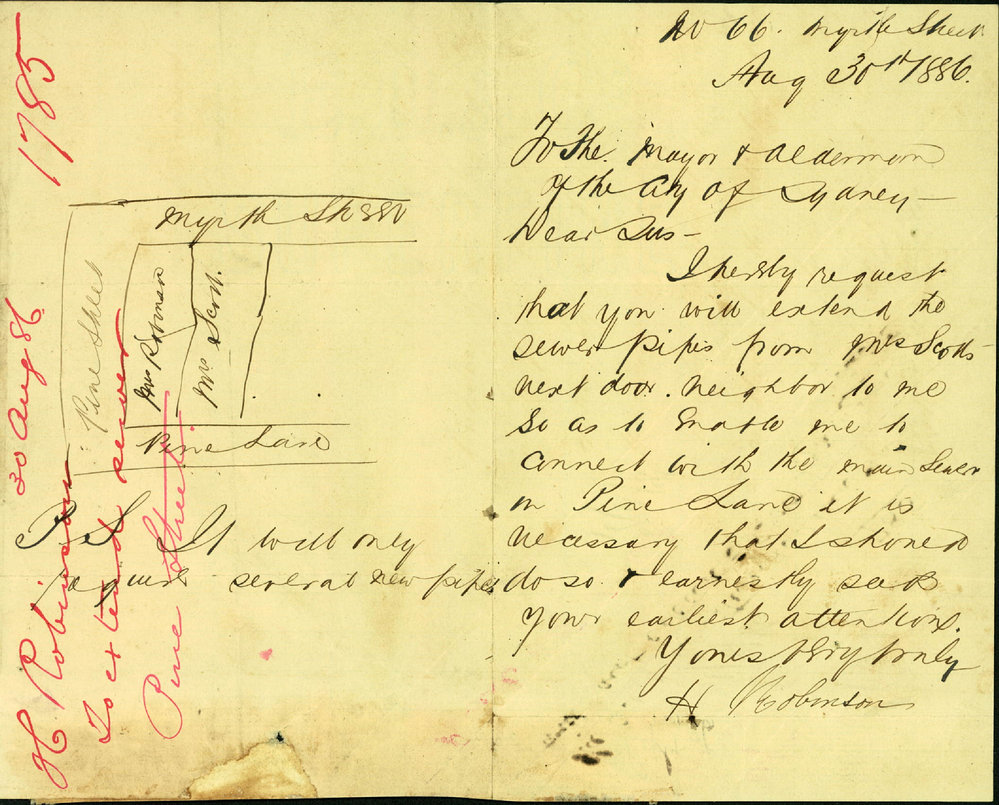 No 66. Myrtle Street
Aug 30th 1886.
To The Mayor & Aldermen
of the City of Sydney—
Dear Sirs—
I hereby request
that you will extend the
sewer pipes from Mrs Scotts
next door. neighbor to me
So as to Enable me to
connect with the main Sewer
in Pine Lane it is
necessary that I should
do so & earnestly seek
your earliest attention.
Yours Very truly
H Robinson
Myrtle Street
Pine Street
Mrs Robinson
Mrs Scott.
Pine Lane
P.S. It will only
require several new pipes
1785
30 Aug 86.
H Robinson
To extend sewer
Pine Street